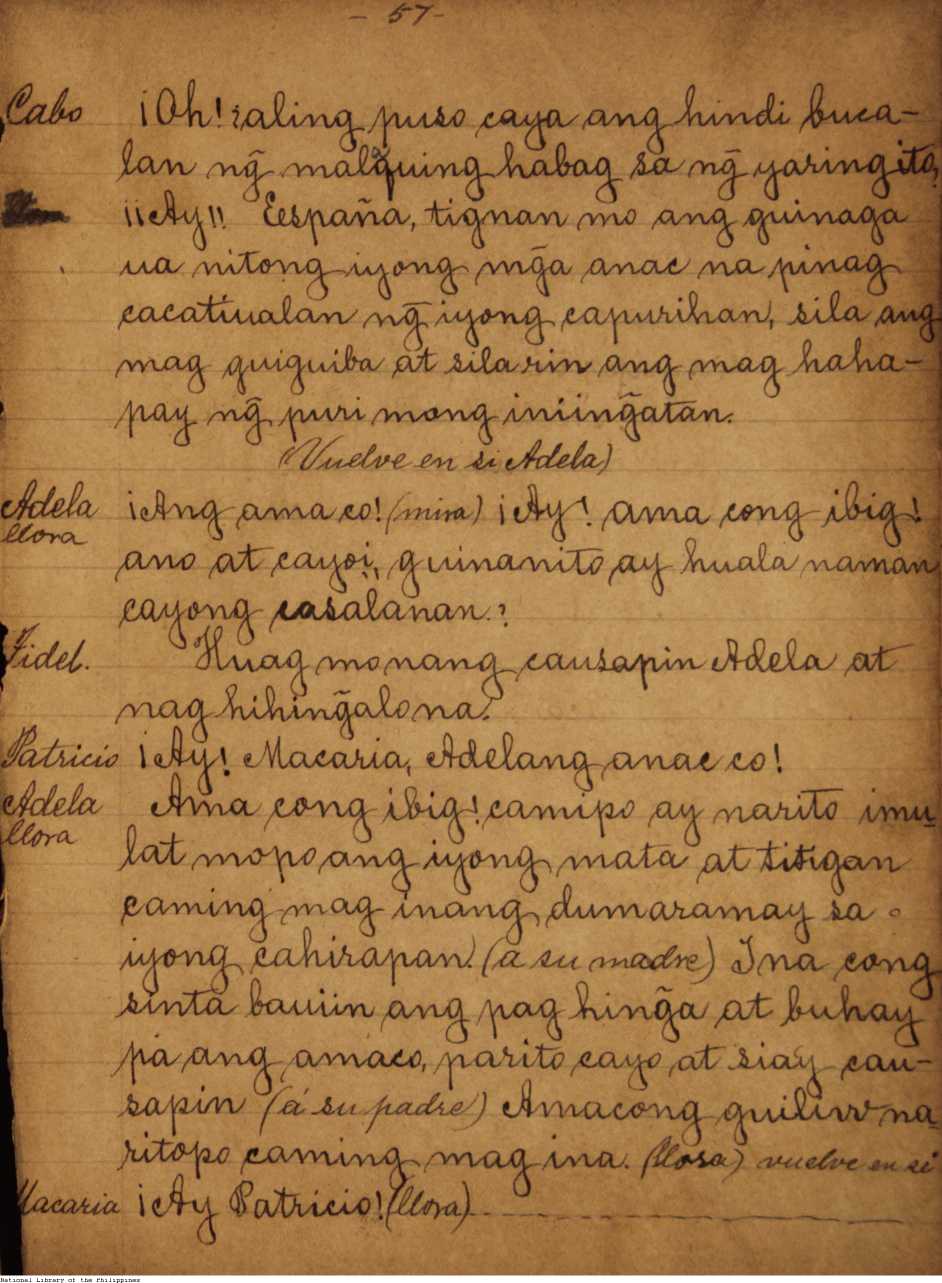 - 57 -
Cabo ¡Oh! ¿aling puso caya ang hindi buca-
lan ng̃ malaquing habag sa ng̃ yaring ito,
¡¡Ay!! Eespaña, tignan mo ang guinaga
ua nitong iyong mg̃a anac na pinag
cacatiualan ng̃ iyong capurihan, sila ang
mag guiguiba at sila rin ang mag haha-
pay ng̃ puri mong iniing̃atan.
(Vuelve en si Adela)
Adela ¡Ang ama co! (mira) ¡Ay! ama cong ibig!
llora
ano at cayoi, guinanito ay huala naman
cayong casalanan?
Fidel. Huag mo nang causapin Adela at
nag hihing̃alo na.
Patricio ¡Ay! Macaria, Adelang anac co!
Adela Ama cong ibig! camipo ay narito imu-
llora
lat mopo ang iyong mata at titigan
caming mag inang dumaramay sa
iyong cahirapan. (a su madre) Ina cong
sinta bauiin ang pag hing̃a at buhay
pa ang amaco, parito cayo at siay cau-
sapin (á su padre) Amacong guiliw na-
ritopo caming mag ina. (llora) vuelve en si
Macaria ¡Ay Patricio! (llora)
National Library of the Philippines